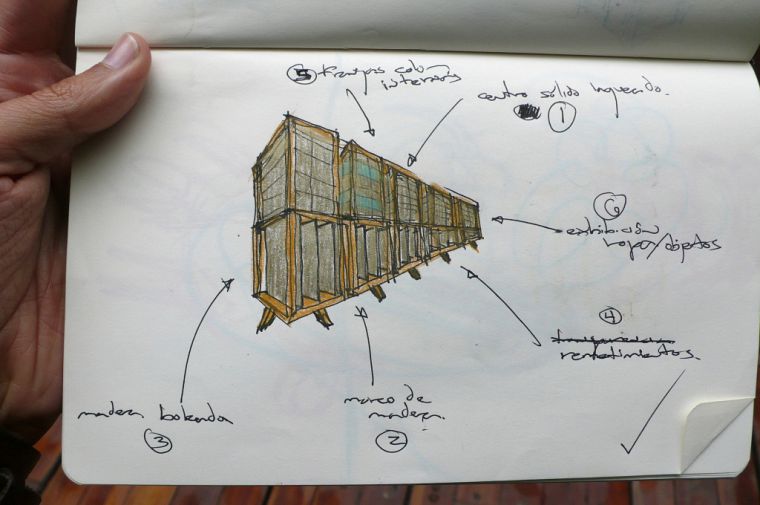 5 franjas color
interiores
centro sólido laqueado.
1
6
exhibición
ropa/objetos
4
remetimientos.
madera boleada
3
marco de
madera.
2